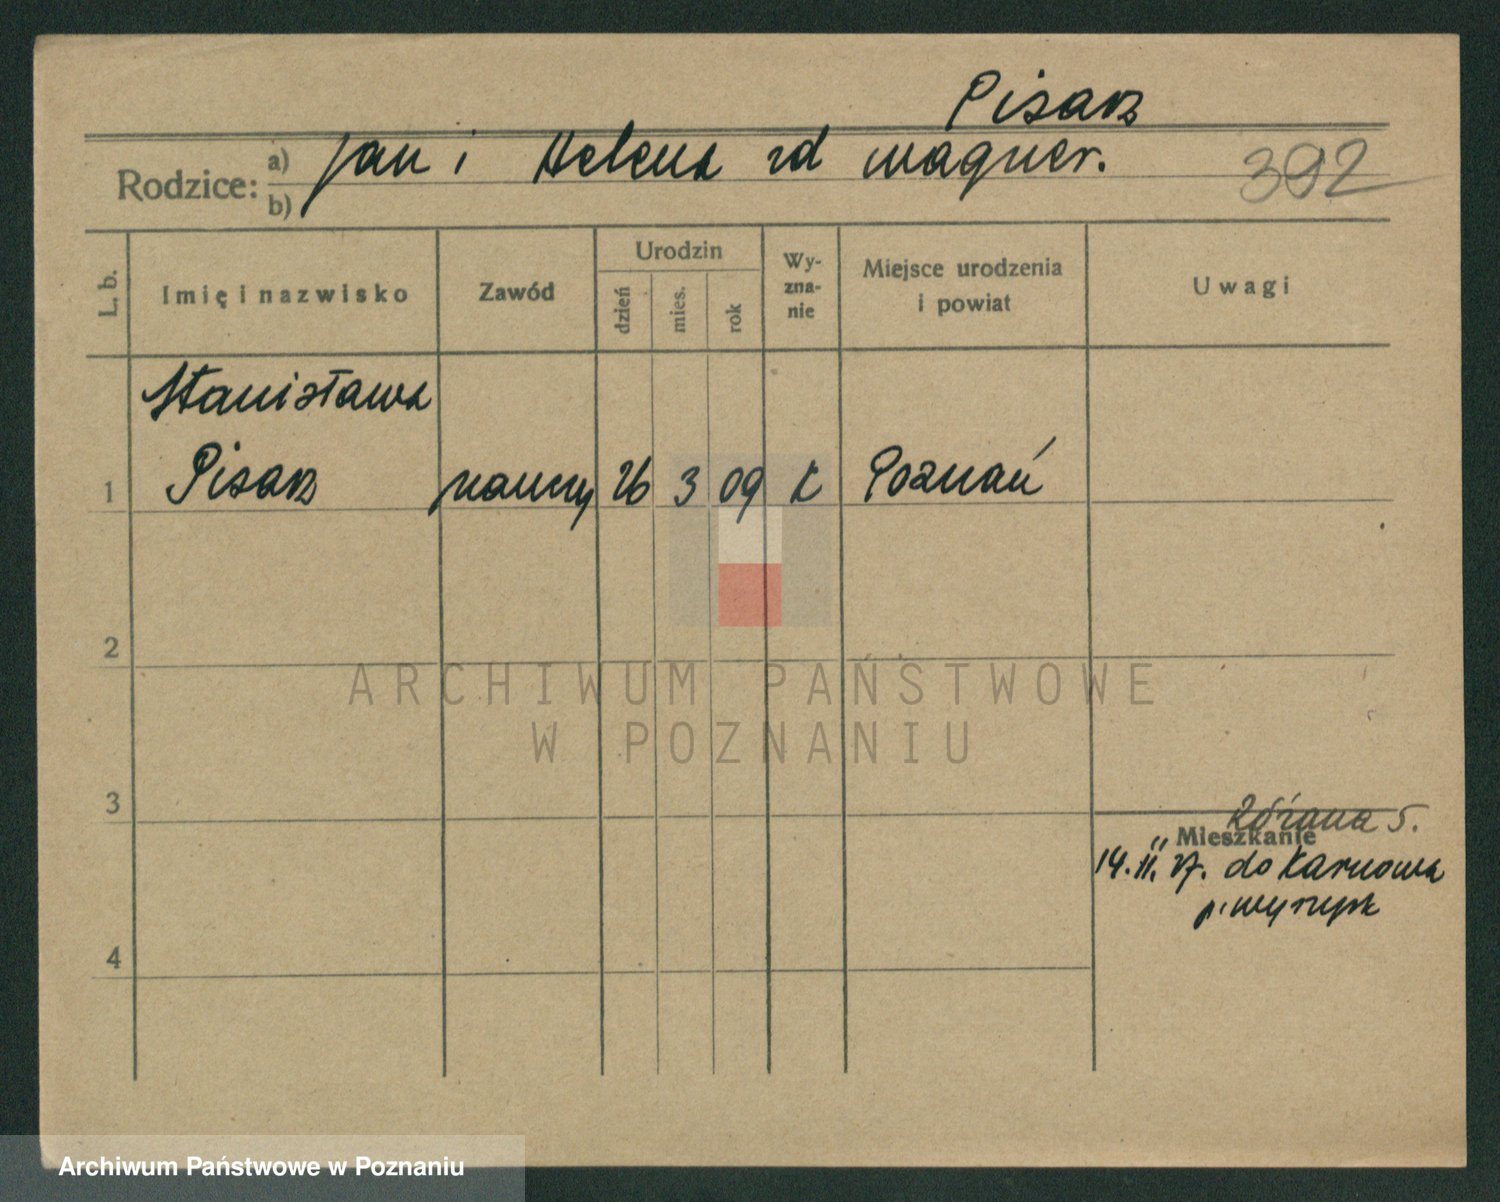 Pisarz
Rodzice: a) Jan i Helena zd Wagner.
b)
392
L. b.
Imię i nazwisko
Zawód
Urodzin
dzień
mies.
rok
Wy-
zna-
nie
Miejsce urodzenia
i powiat
Uwagi
Stanisława
1 Pisarz nauczy 26 3 09 k Poznań
2
ARCHIWUM PAŃSTWOWE
W POZNANIU
3
Różana 5.
Mieszkanie
14. II. 27. do Karnowa
p. Wyrzysk
4
Archiwum Państwowe w Poznaniu